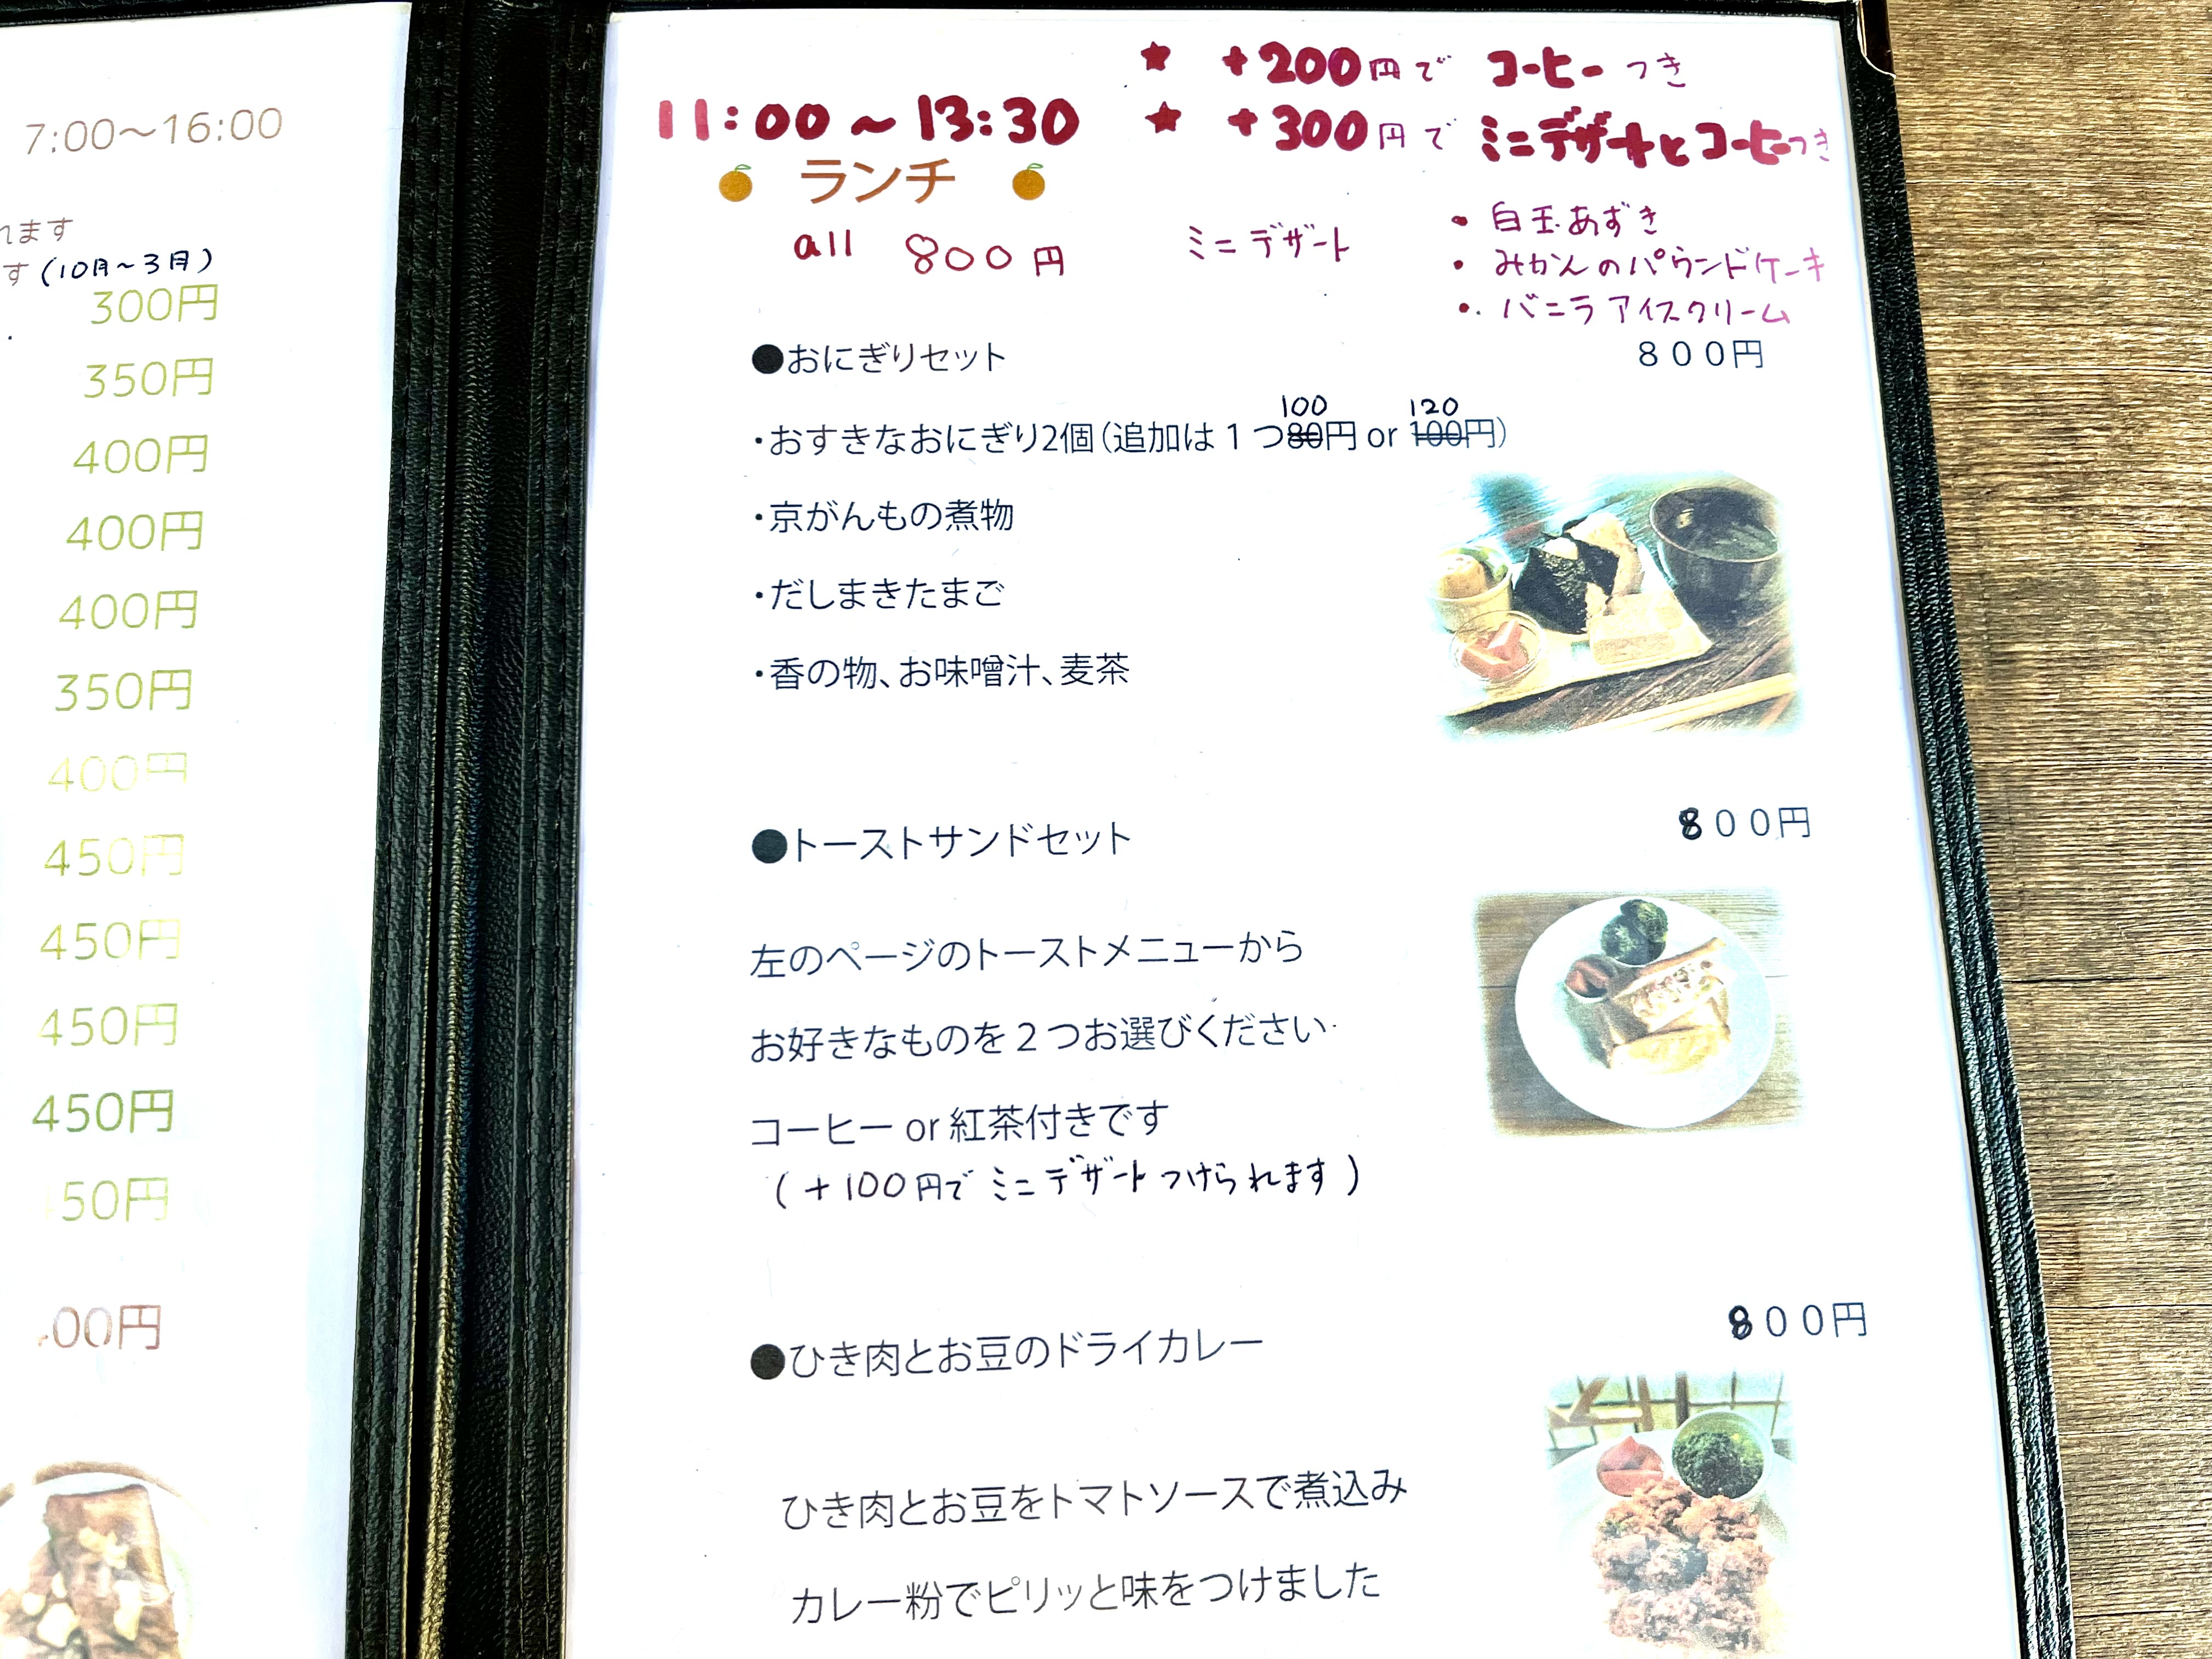 7:00～16:00
れます
す(10月～3月)
300円
350円
400円
400円
400円
350円
400円
450円
450円
450円
450円
50円
00円
★ +200円で コーヒーつき
11:00～13:30 ★ +300円で ミニデザートとコーヒーつき
ランチ
all 800円 ミニデザート
・白玉あずき
・みかんのパウンドケーキ
・バニラアイスクリーム
●おにぎりセット 800円
100 120
・おすきなおにぎり2個(追加は1つ80円 or 100円)
・京がんもの煮物
・だしまきたまご
・香の物、お味噌汁、麦茶
●トーストサンドセット 800円
左のページのトーストメニューから
お好きなものを2つお選びください
コーヒー or 紅茶付きです
(+100円で ミニデザートつけられます)
●ひき肉とお豆のドライカレー 800円
ひき肉とお豆をトマトソースで煮込み
カレー粉でピリッと味をつけました